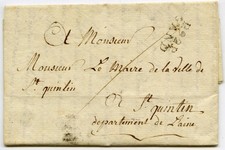 A Monsieur
Monsieur Le Maire de la ville de
St. quintin
A St. quintin
departement de L'aine